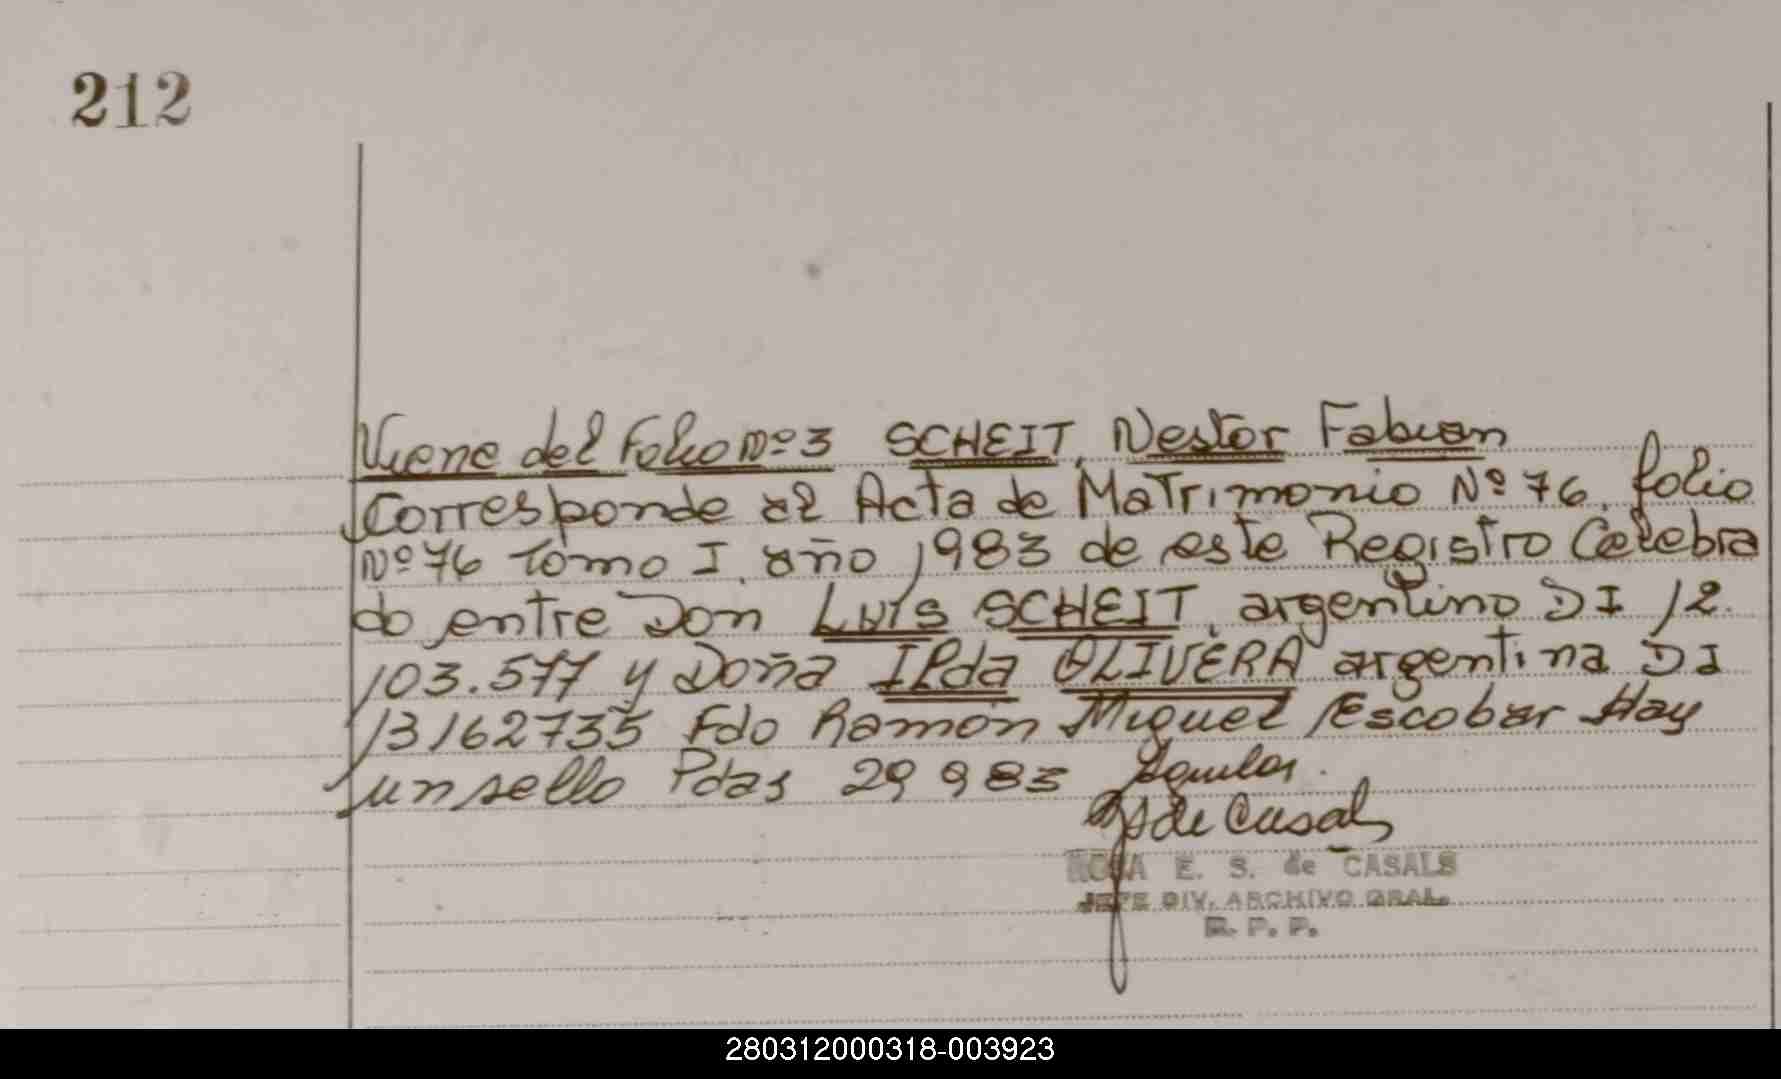 212
Viene del Folio Nº 3 SCHEIT, Nestor Fabian
Corresponde al Acta de Matrimonio Nº 76, folio
Nº 76 Tomo I, año 1983 de este Registro Celebra
do entre Don Luis SCHEIT, argentino DI 12.
103.577 y Doña Ilda OLIVERA argentina DI
13162735 Fdo Ramón Miguel Escobar Hay
un sello Pdas 29 9 83 Aguilar.
de Casals
ROSA E. S. de CASALS
JEFE DIV. ARCHIVO GRAL.
R. P. P.
280312000318-003923